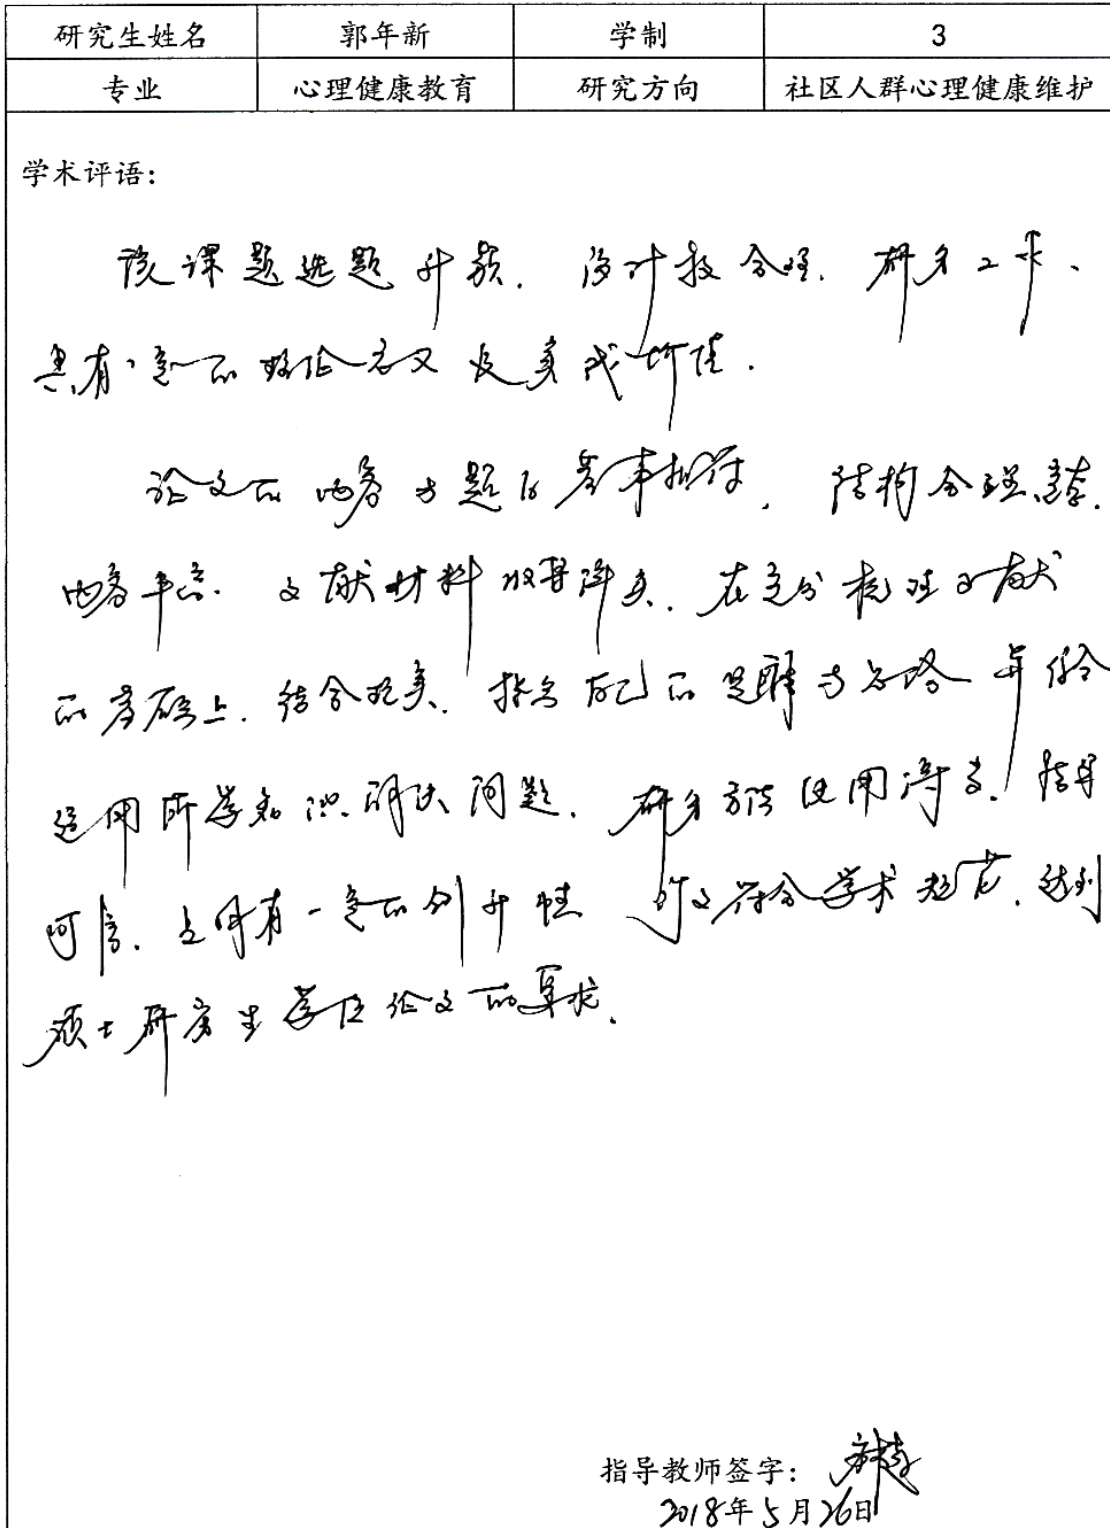 研究生姓名 郭年新 学制 3
专业 心理健康教育 研究方向 社区人群心理健康维护
学术评语：
该课题选题新颖. 设计较合理. 研究工作、
具有一定的理论意义及实践价值.
论文的内容与题目基本相符， 结构合理、完整.
内容丰富. 文献材料收集详实. 在充分梳理文献
的基础上. 结合现实. 指出自己的见解与思路 并结合
运用所学知识解决问题. 研究方法使用得当. 结果
可信. 且具有一定的创新性 行文符合学术规范. 达到
硕士研究生学位论文的要求.
指导教师签字：
2018年5月26日